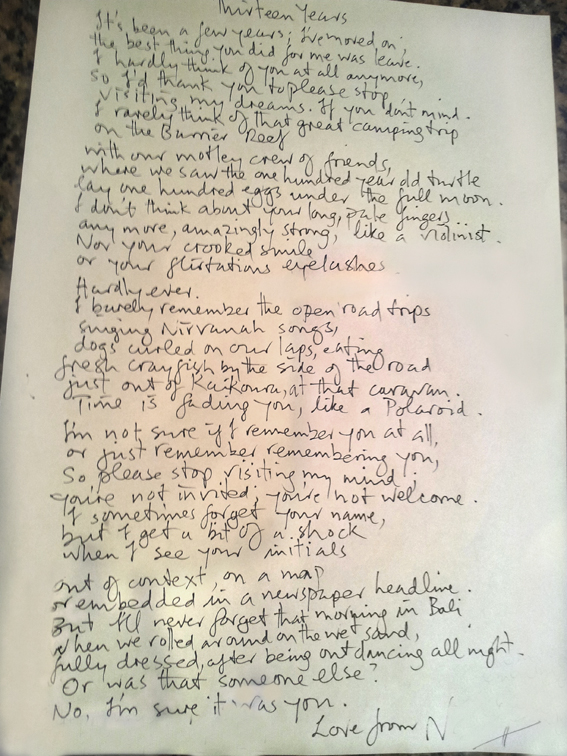 Thirteen Years
It's been a few years; I've moved on;
the best thing you did for me was leave.
I hardly think of you at all anymore,
so I'd thank you to please stop
visiting my dreams. If you don't mind.
I rarely think of that great camping trip
on the Barrier Reef
with our motley crew of friends,
where we saw the one hundred year old turtle
lay one hundred eggs under the full moon.
I don't think about your long, pale fingers
any more, amazingly strong, like a violinist.
Nor your crooked smile
or your flirtatious eyelashes.
Hardly ever.
I barely remember the open road trips
singing Nirvanah songs,
dogs curled on our laps, eating
fresh crayfish by the side of the road
just out of Kaikoura, at that caravan..
Time is fading you, like a Polaroid.
I'm not sure if I remember you at all,
or just remember remembering you,
So please stop visiting my mind;
you're not invited; you're not welcome.
I sometimes forget your name,
but I get a bit of a shock
when I see your initials
out of context, on a map
or embedded in a newspaper headline.
But I'll never forget that morning in Bali
when we rolled around on the wet sand,
fully dressed, after being out dancing all night.
Or was that someone else?
No, I'm sure it was you.
Love from N